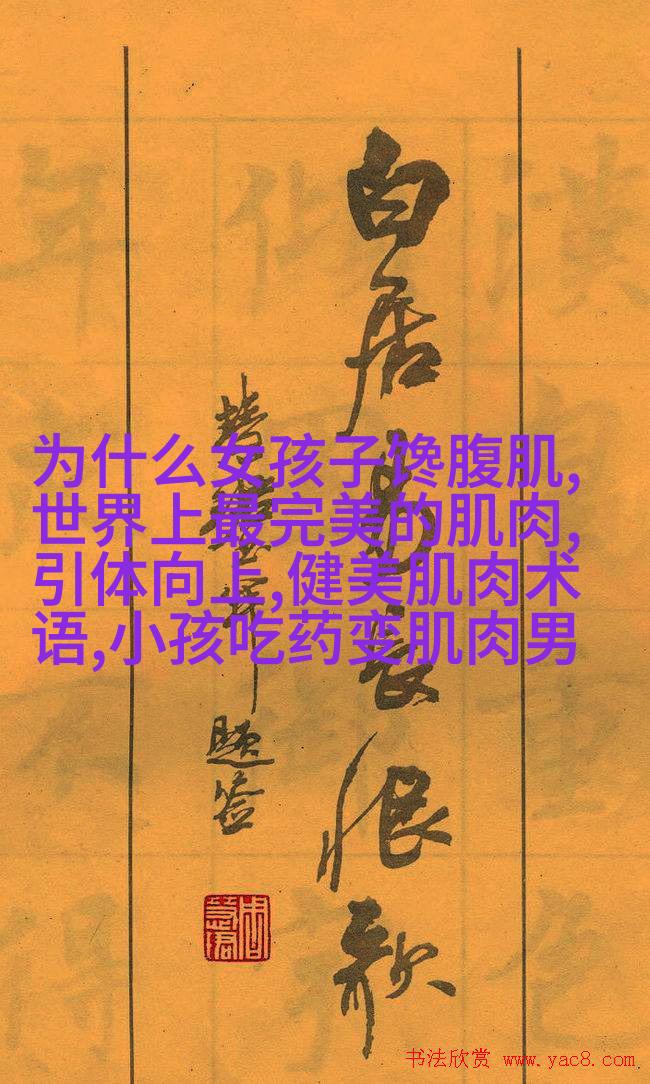 白居易长恨歌
题签
为什么女孩子馋腹肌,
世界上最完美的肌肉,
引体向上,健美肌肉术
语,小孩吃药变肌肉男
书法欣赏 www.yac8.com